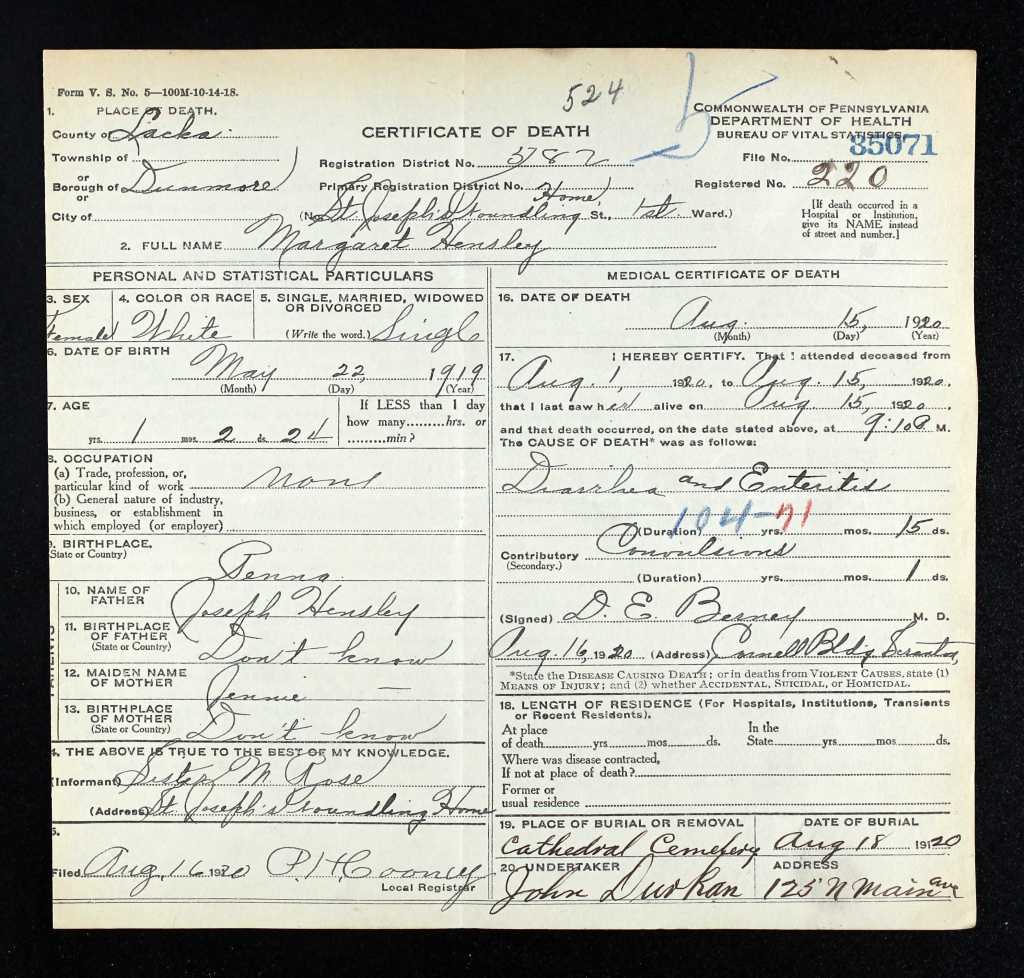 Form V. S. No. 5—100M-10-14-18.
524
5
1. PLACE OF DEATH.
County of Lacka.
Township of
or
Borough of Dunmore
or
City of
CERTIFICATE OF DEATH
Registration District No. 5782
Primary Registration District No.
(No. St. Joseph's Foundling Home St., 1st. Ward.)
COMMONWEALTH OF PENNSYLVANIA
DEPARTMENT OF HEALTH
BUREAU OF VITAL STATISTICS
File No. 35071
Registered No. 220
[If death occurred in a
Hospital or Institution,
give its NAME instead
of street and number.]
2. FULL NAME Margaret Hensley
PERSONAL AND STATISTICAL PARTICULARS
3. SEX
Female
4. COLOR OR RACE
White
5. SINGLE, MARRIED, WIDOWED
OR DIVORCED
(Write the word.) Single
6. DATE OF BIRTH
May 22, 1919
(Month) (Day) (Year)
7. AGE
yrs. 1 mos. 2 ds. 24
If LESS than 1 day
how many.........hrs. or
.........min?
8. OCCUPATION
(a) Trade, profession, or,
particular kind of work None
(b) General nature of industry,
business, or establishment in
which employed (or employer)
9. BIRTHPLACE.
(State or Country)
Penna.
PARENTS
10. NAME OF
FATHER
Joseph Hensley
11. BIRTHPLACE
OF FATHER
(State or Country)
Don't know
12. MAIDEN NAME
OF MOTHER
Jennie —
13. BIRTHPLACE
OF MOTHER
(State or Country)
Don't know
14. THE ABOVE IS TRUE TO THE BEST OF MY KNOWLEDGE.
(Informant) Sister M. Rose
(Address) St. Joseph's Foundling Home
15.
Filed Aug. 16 1920 P. H. Cooney
Local Registrar
MEDICAL CERTIFICATE OF DEATH
16. DATE OF DEATH
Aug. 15, 1920
(Month) (Day) (Year)
17. I HEREBY CERTIFY. That I attended deceased from
Aug. 1, 1920. to Aug. 15, 1920.
that I last saw her alive on Aug. 15, 1920.
and that death occurred, on the date stated above, at 9:10 P M.
The CAUSE OF DEATH* was as follows:
Diarrhea and Enteritis
104-71
(Duration) yrs. mos. 15 ds.
Contributory Convulsions
(Secondary.)
(Duration) yrs. mos. 1 ds.
(Signed) D. E. Berney M. D.
Aug. 16, 1920 (Address) Connell Bldg Scranton
*State the DISEASE CAUSING DEATH; or in deaths from VIOLENT CAUSES, state (1)
MEANS OF INJURY; and (2) whether ACCIDENTAL, SUICIDAL, or HOMICIDAL.
18. LENGTH OF RESIDENCE (For Hospitals, Institutions, Transients
or Recent Residents).
At place
of death yrs. mos. ds.
In the
State yrs. mos. ds.
Where was disease contracted,
If not at place of death?
Former or
usual residence
19. PLACE OF BURIAL OR REMOVAL
Cathedral Cemetery
DATE OF BURIAL
Aug 18 1920
20. UNDERTAKER
John Durkan
ADDRESS
125 N Main ave